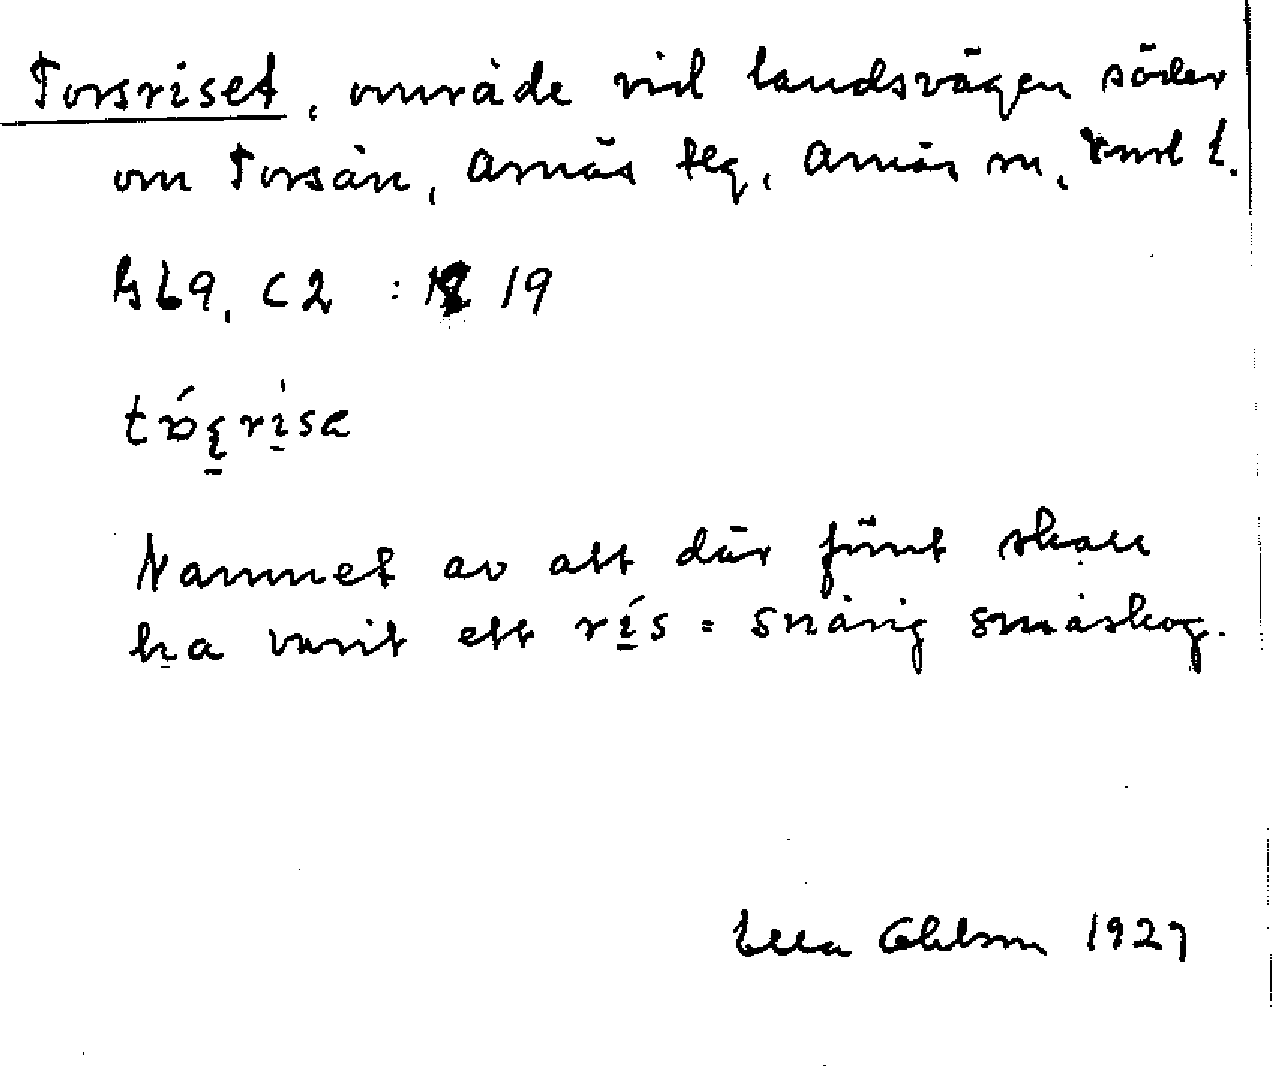 Torsriset, område vid landsvägen söder
om Torsån, Arnäs flg, Arnäs sn,
GL9, C2 : 19
Namnet av att där förut skall
ha varit ett rís = snårig småskog.
Ella Ohlson 1927